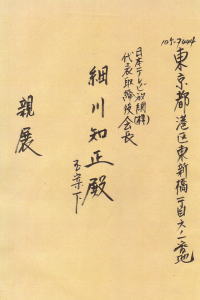 105-7444
東京都港区東新橋一丁目六ノ一番地
日本テレビ放送網(株)
代表取締役会長
細川知正殿
玉案下
親展